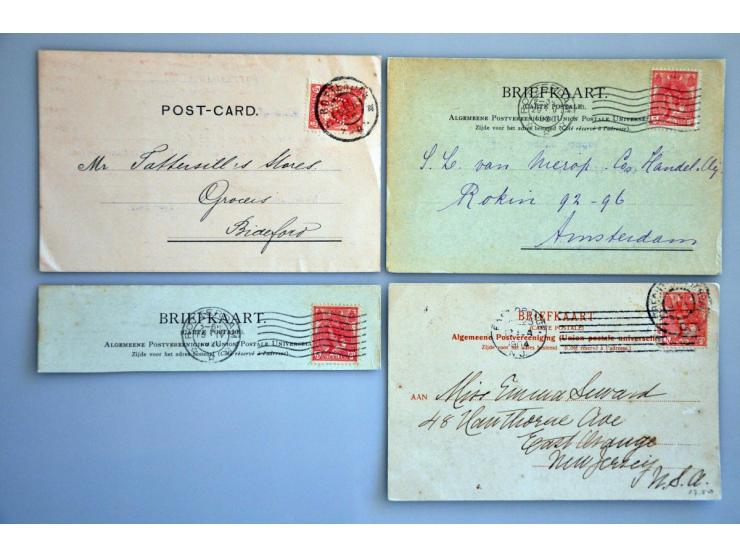 POST-CARD.
Mr Tattersill's Stores.
Grocers
Bideford
BRIEFKAART.
(CARTE POSTALE)
ALGEMEENE POSTVEREENIGING (UNION POSTALE UNIVERSELLE)
Zijde voor het adres bestemd (Côté réservé à l'adresse).
S. L. van Nierop Cos Handel Mij
Rokin 92-96
Amsterdam
BRIEFKAART.
(CARTE POSTALE)
ALGEMEENE POSTVEREENIGING (UNION POSTALE UNIVERSELLE)
Zijde voor het adres bestemd (Côté réservé à l'adresse).
BRIEFKAART
(CARTE POSTALE)
Algemeene Postvereeniging (Union postale universelle)
Zijde voor het adres bestemd (Côté réservé à l'adresse).
AAN
Miss Emma Seward
48 Hawthorne Ave
East Orange
New Jersey
U.S.A.